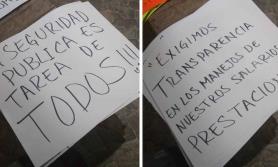 SEGURIDAD
PUBLICA ES
TAREA DE
TODOS!!!
"EXIGIMOS
TRANSPARENCIA
EN LOS MANEJOS DE
NUESTROS SALARIOS
PRESTACIO